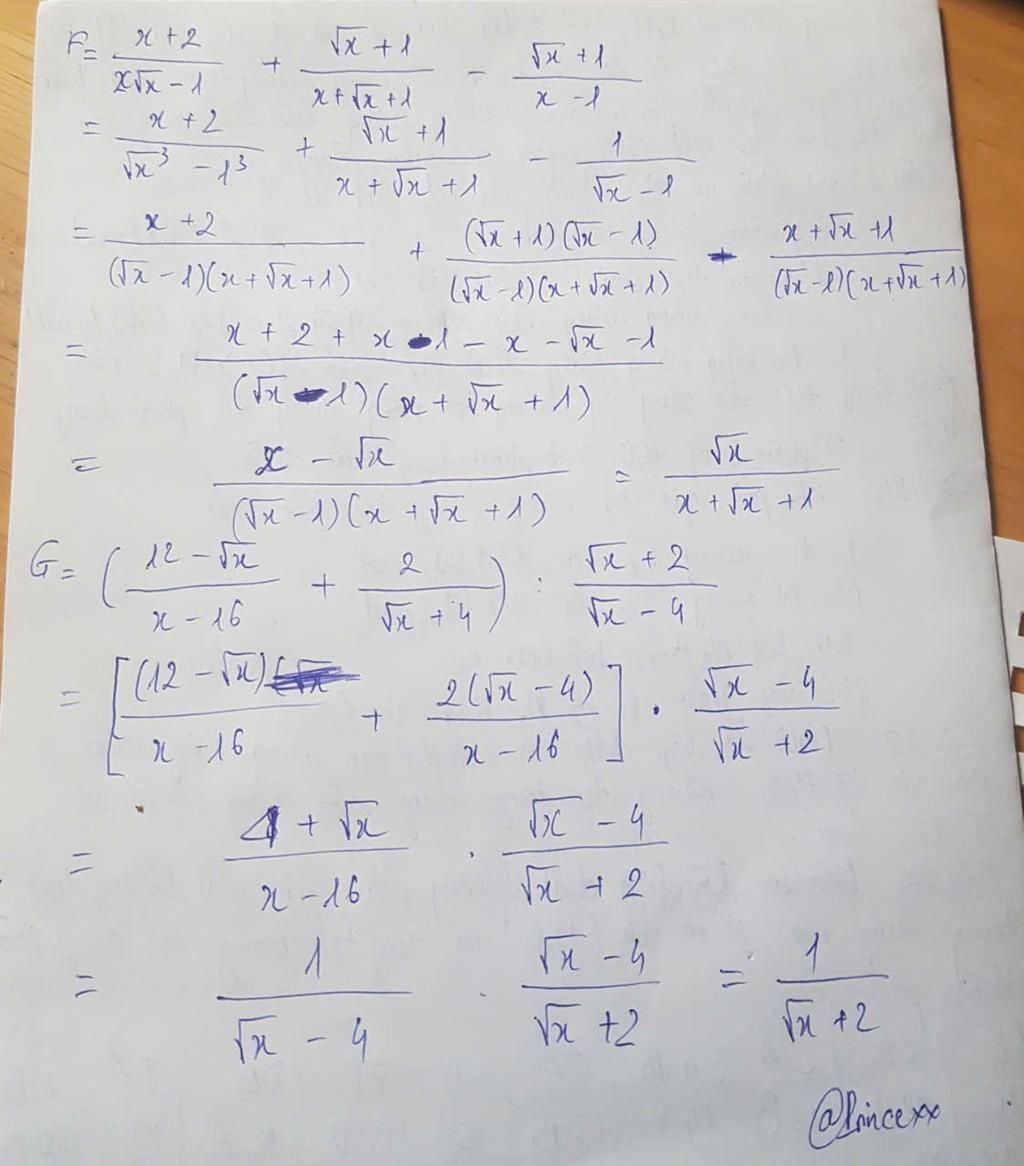 F = (x + 2)/(x√x − 1) + (√x + 1)/(x + √x + 1) − (√x + 1)/(x − 1)
= (x + 2)/(√x³ − 1³) + (√x + 1)/(x + √x + 1) − 1/(√x − 1)
= (x + 2)/((√x − 1)(x + √x + 1)) + ((√x + 1)(√x − 1))/((√x − 1)(x + √x + 1)) − (x + √x + 1)/((√x − 1)(x + √x + 1))
= (x + 2 + x − 1 − x − √x − 1)/((√x − 1)(x + √x + 1))
= (x − √x)/((√x − 1)(x + √x + 1)) = √x/(x + √x + 1)
G = ((12 − √x)/(x − 16) + 2/(√x + 4)) : (√x + 2)/(√x − 4)
= [(12 − √x)/(x − 16) + 2(√x − 4)/(x − 16)] . (√x − 4)/(√x + 2)
= (4 + √x)/(x − 16) . (√x − 4)/(√x + 2)
= 1/(√x − 4) . (√x − 4)/(√x + 2) = 1/(√x + 2)
@Princexx